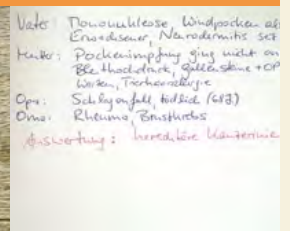 Vater: Mononukleose, Windpocken als
Erwachsener, Neurodermitis seit
Mutter: Pockenimpfung ging nicht an
Bluthochdruck, Gallensteine + OP
Warzen, Tierhaarallergie
Opa: Schlaganfall, tödlich (68J.)
Oma: Rheuma, Brustkrebs
Auswertung: hereditäre